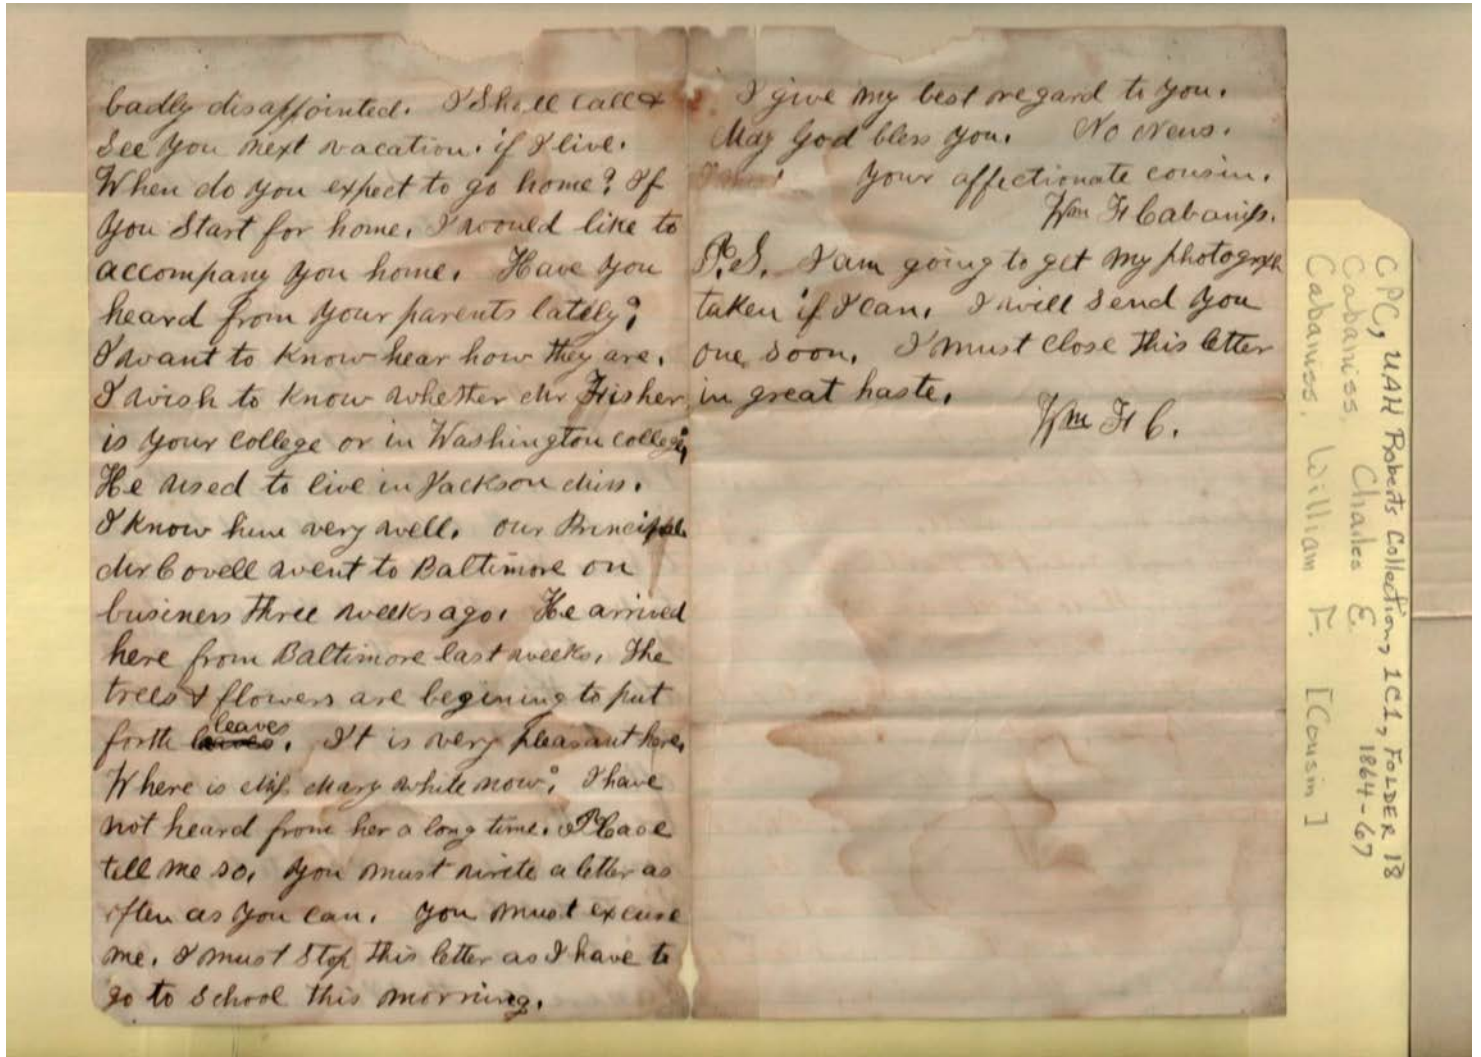 badly disappointed. I Shall call &
See you next vacation. if I live.
When do you expect to go home? If
you Start for home, I would like to
accompany you home. Have you
heard from your parents lately?
I want to know hear how they are.
I wish to know whether Mr Fisher
is your college or in Washington college,
He used to live in Jackson Miss.
I know him very well. our Principal
Mr Covell went to Baltimore on
business three weeks ago. He arrived
here from Baltimore last weeks. The
trees & flowers are begining to put
leaves
forth. It is very pleasant here,
Where is Miss. Mary white now? I have
not heard from her a long time. Please
tell me so. You must write a letter as
often as you can. You must excuse
me. I must Stop this letter as I have to
go to School this morning.
I give my best regard to you.
May God bless you. No News.
Your affectionate cousin.
Wm F Cabaniss.
P.S. I am going to get my photograph
taken if I can. I will send you
one soon. I must close this letter
in great haste.
Wm F C.
CPC, UAH Roberts Collection, 1C1, FOLDER 18
1864-67
Cabaniss, Charles E.
Cabaniss, William F. [Cousin]